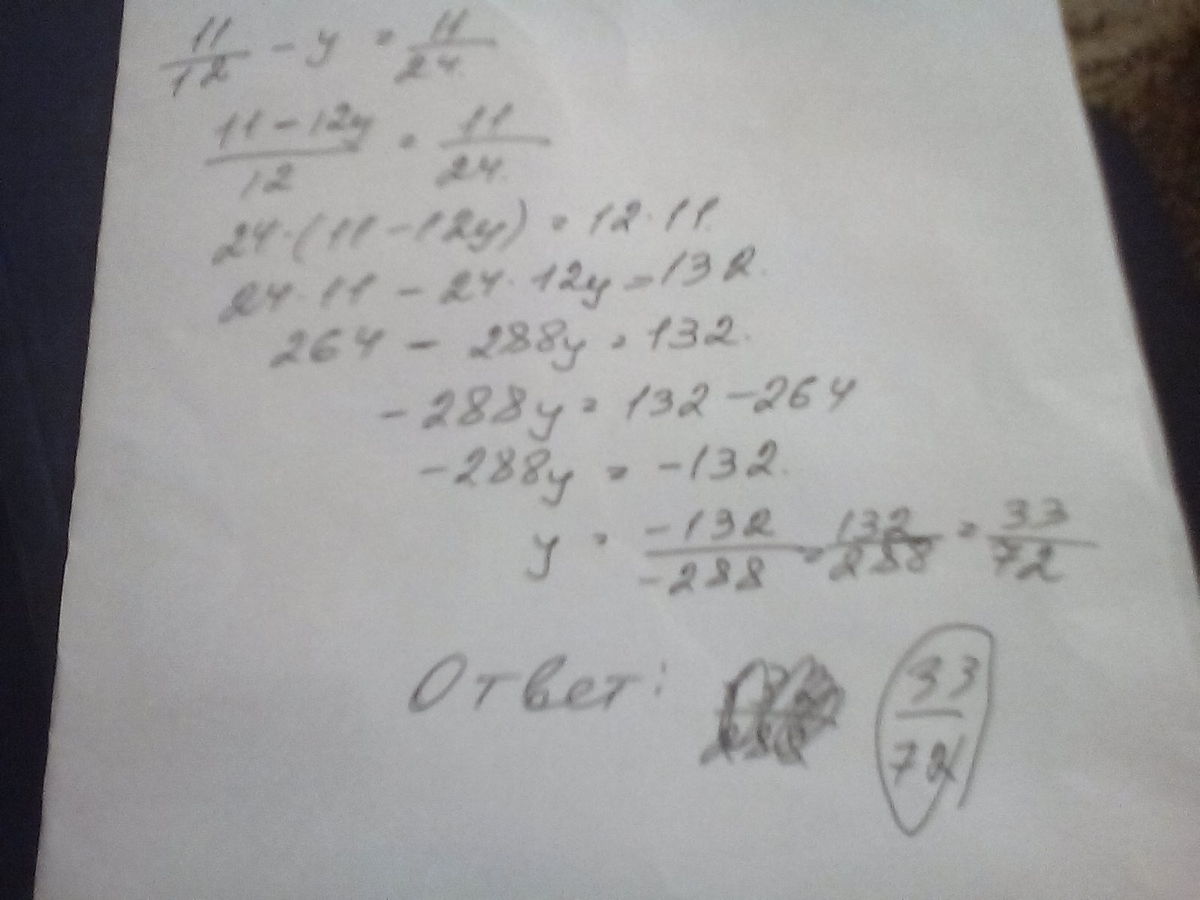 11/12 - y = 11/24
11-12y/12 = 11/24.
24·(11-12y) = 12·11.
24·11 - 24·12y = 132.
264 - 288y = 132.
-288y = 132-264
-288y = -132.
y = -132/-288 = 132/288 = 33/72
Ответ: 33/72